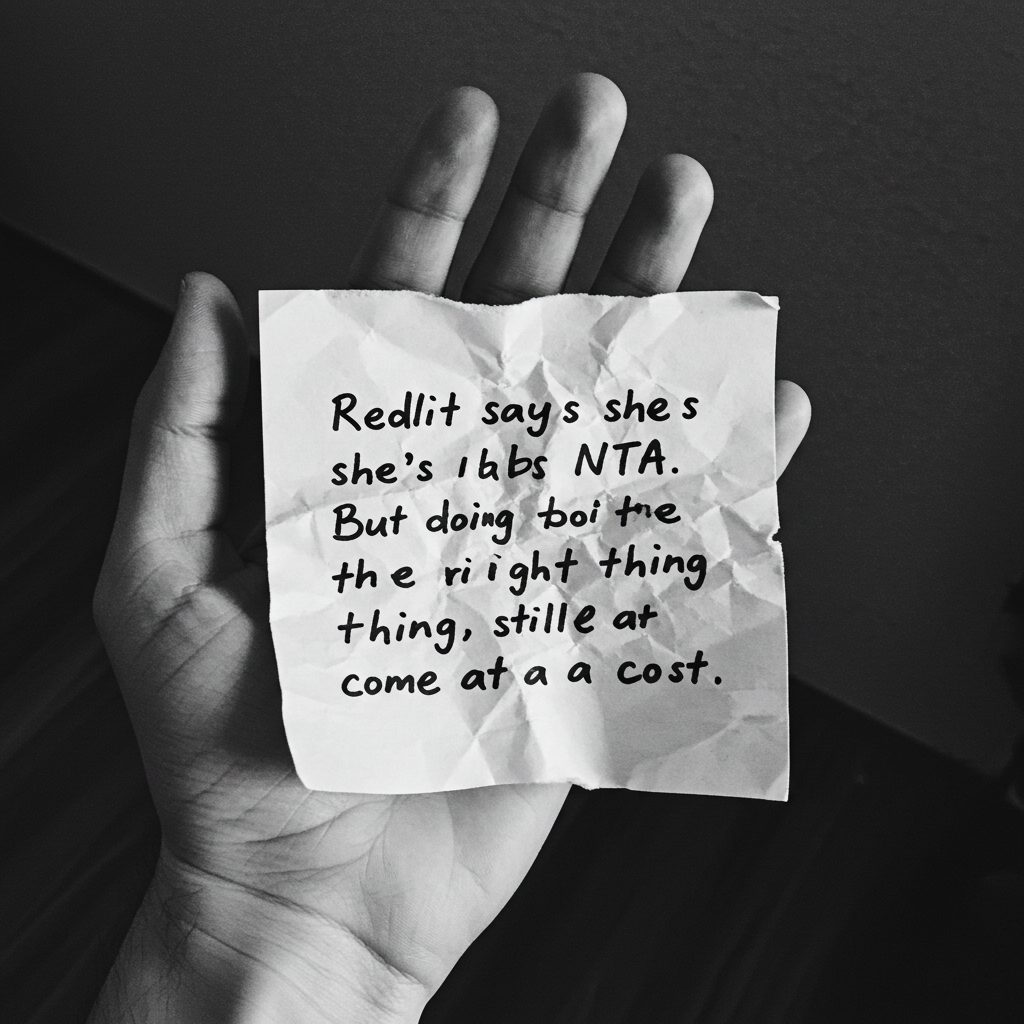 Redlit says she s
she's NTA.
But doing boi the
the ri ight thing
thing, stille at
come at a a cost.